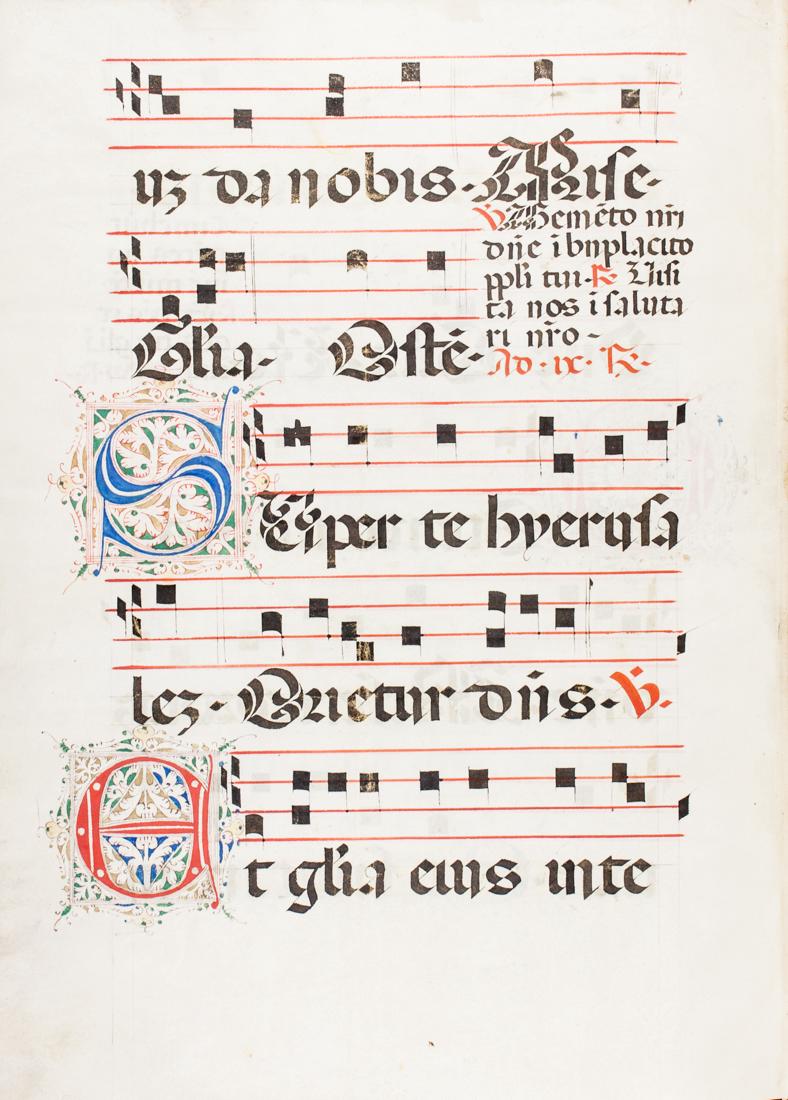 uʒ da nobis. Mise.
℣ Memēto nr̄i
dn̄e ī bn̄placito
ppl̄i tui. ℟. Visi
ta nos ī saluta
ri nr̄o.
Gl̄ia. Ostē.
Ad. ix. ℟.
SUper te hyerusa
leʒ. Orietur dn̄s. ℣.
Et gl̄ia eius inte